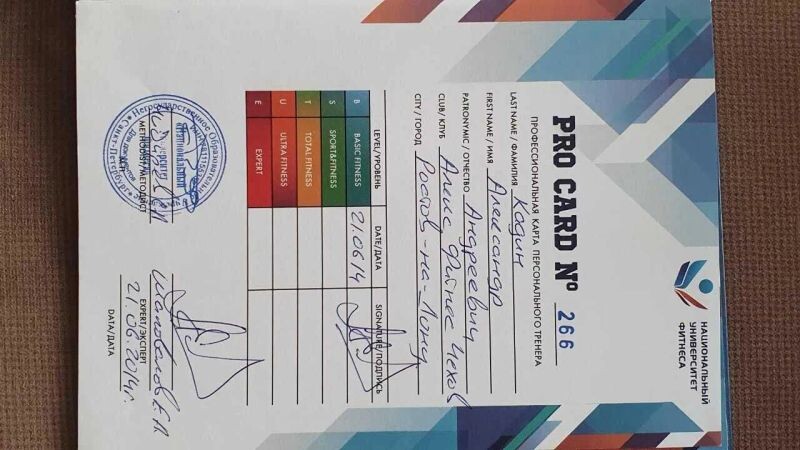 НАЦИОНАЛЬНЫЙ
УНИВЕРСИТЕТ
ФИТНЕСА
PRO CARD № 266
ПРОФЕССИОНАЛЬНАЯ КАРТА ПЕРСОНАЛЬНОГО ТРЕНЕРА
LAST NAME / ФАМИЛИЯ Кодин
FIRST NAME / ИМЯ Александр
PATRONYMIC / ОТЧЕСТВО Андреевич
CLUB/ КЛУБ Алекс Фитнес Чехов
CITY / ГОРОД Ростов-на-Дону
LEVEL/УРОВЕНЬ DATE/ДАТА SIGNATURE/ПОДПИСЬ
B BASIC FITNESS 21.0614
S SPORT&FITNESS
T TOTAL FITNESS
U ULTRA FITNESS
E EXPERT
МЕТОДИСТ/МЕТОДИСТ
EXPERT/ЭКСПЕРТ
21.06.2014г.
DATA/ДАТА
Негосударственное Образовательное
Санкт-Петербург